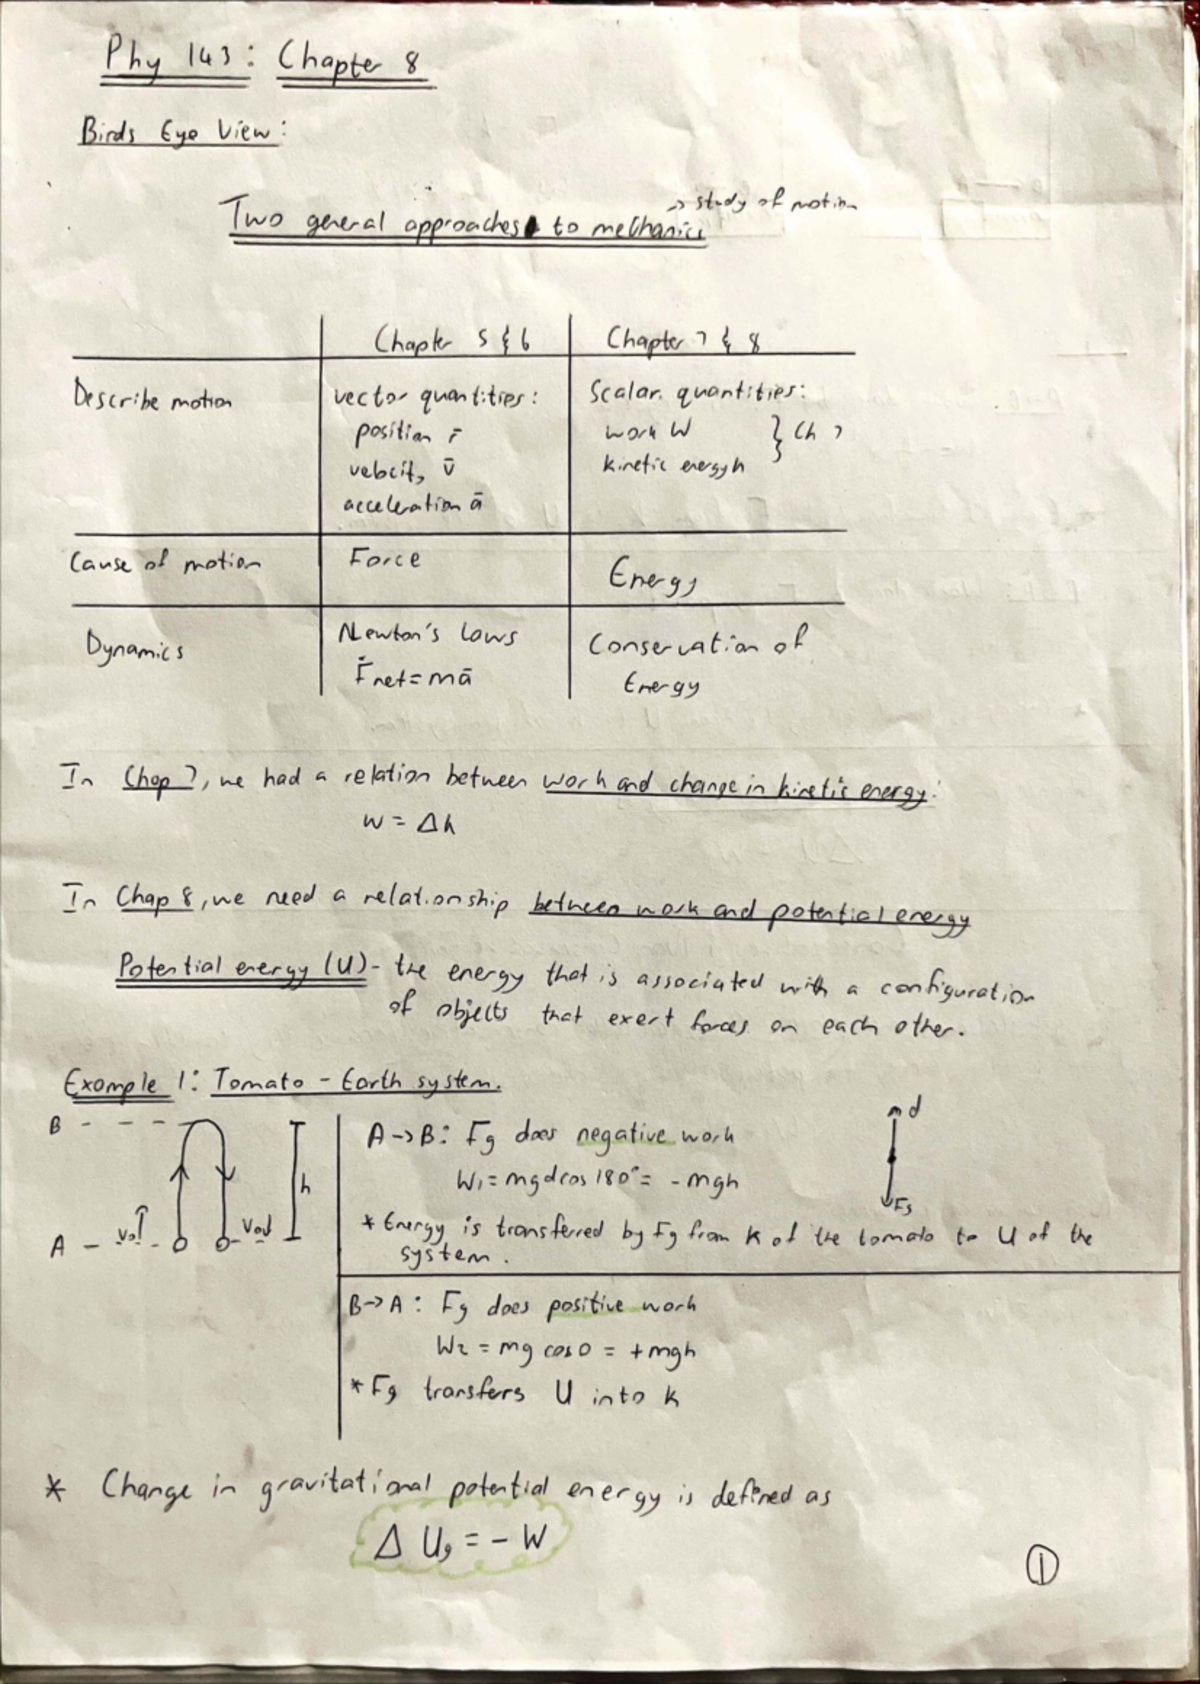 Phy 143: Chapter 8
Birds Eye View:
→ study of motion
Two general approaches to mechanics
Chapter 5 & 6 Chapter 7 & 8
Describe motion vector quantities: Scalar quantities:
position r̄ work W } Ch 7
velocity v̄ kinetic energy k
acceleration ā
Cause of motion Force Energy
Dynamics Newton's Laws Conservation of
F̄net = mā Energy
In Chap 7, we had a relation between work and change in kinetic energy:
W = Δk
In Chap 8, we need a relationship between work and potential energy
Potential energy (U) - the energy that is associated with a configuration
of objects that exert forces on each other.
Example 1: Tomato - Earth system.
B
h
A
v₀↑
v₀↓
A → B: Fg does negative work
W₁ = mgd cos 180° = - mgh
d
Fg
* Energy is transferred by Fg from K of the tomato to U of the
system.
B → A: Fg does positive work
W₂ = mg cos 0 = + mgh
* Fg transfers U into k
* Change in gravitational potential energy is defined as
Δ Ug = - W
①